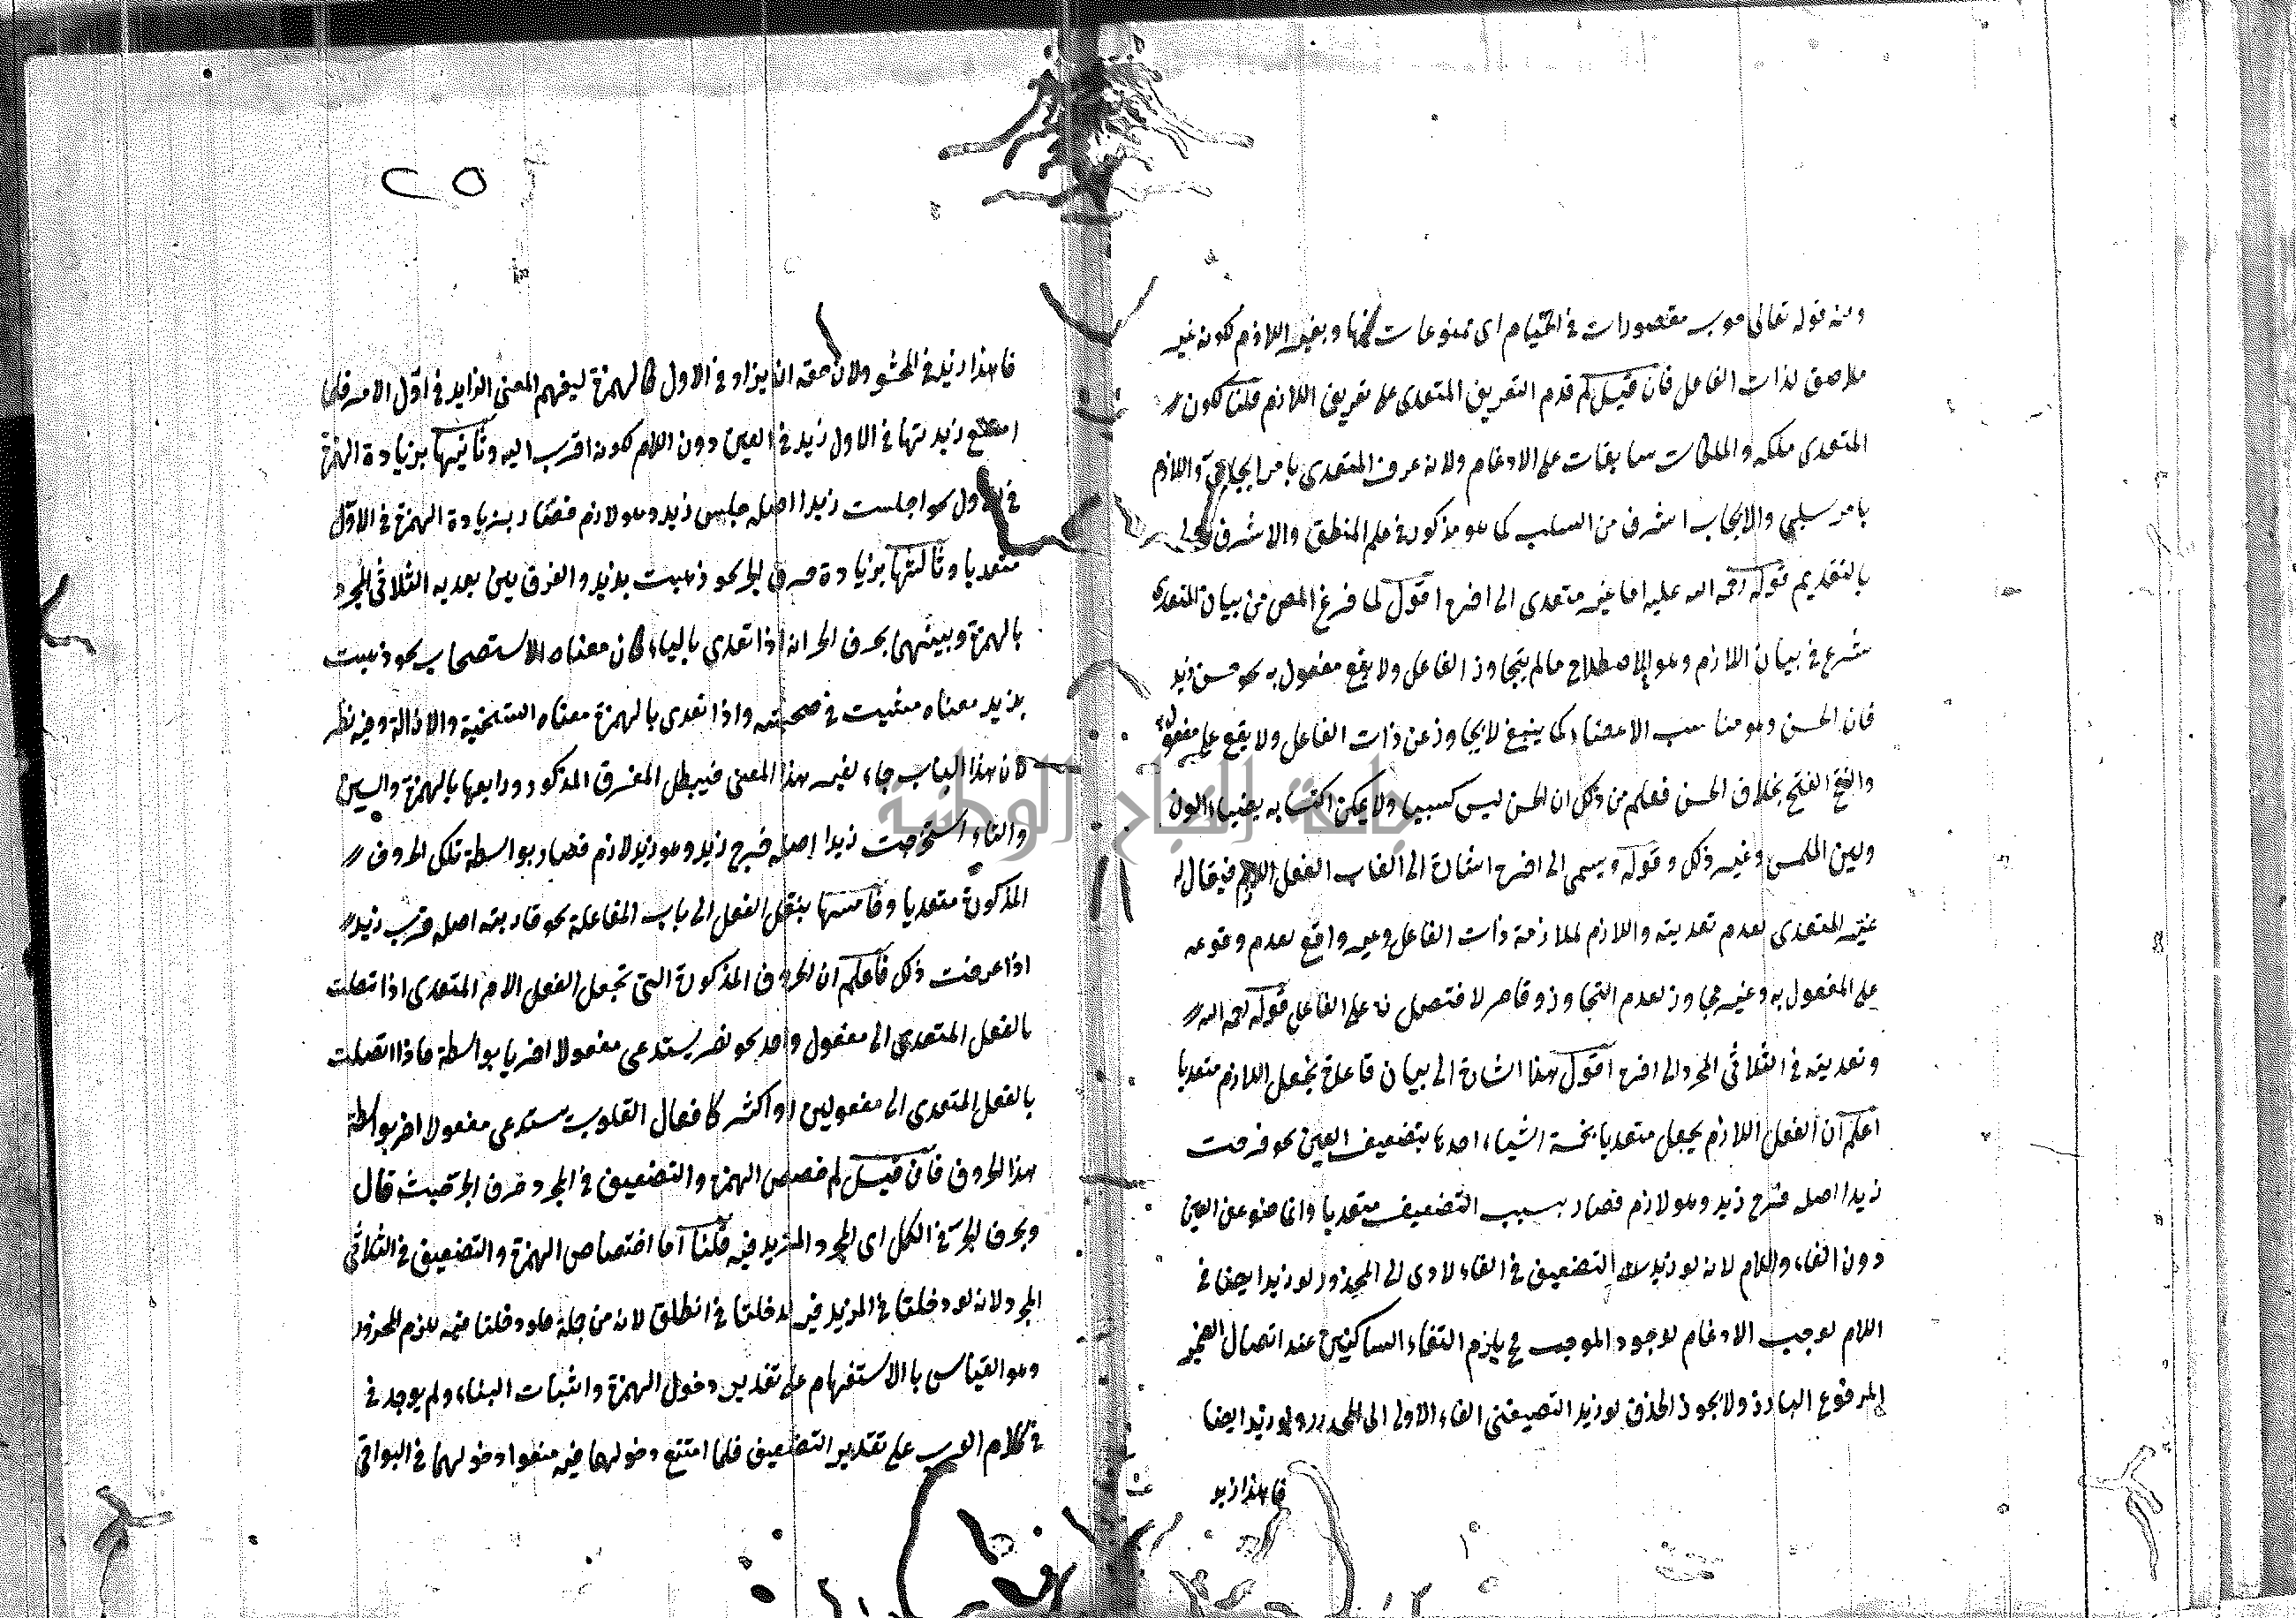 ومنه قوله تعالى حور مقصورات في الخيام اى ممنوعات عنها وبغير اللازم لكونه غير
ملاصق لذات الفاعل فان قيل لم قدم التعريف المتعدى على تعريف اللازم قلنا لكون
المتعدى ملكه والملكات سابقات على الاعدام ولانه عرف المتعدى بامر ايجابي واللازم
بامر سلبي والايجاب اشرف من السلب كما هو مذكور في علم المنطق والاشرف اولى
بالتقديم قوله رحمه الله عليه اما غير متعدى الى اخره اقول لما فرغ المص من بيان المتعدى
شرع في بيان اللازم وهو الاصطلاح ما لم يتجاوز الفاعل ولا يقع مفعول به نحو حسن زيد
فان الحسن وهو مناسب الاعضاء كما ينبغي لا يجاوز عن ذات الفاعل ولا يقع على مفعوله
والقبح بخلاف الحسن فعلم من ذلك ان الحسن ليس كسبيا ولا يمكن اكتسابه بضياء اللون
ولين الملمس وغير ذلك وقوله ويسمى الى اخره اشارة الى القاب الفعل اللازم فيقال له
غير المتعدى لعدم تعديته واللازم لملازمة ذات الفاعل وغير واقع لعدم وقوعه
على المفعول به وغير مجاوز لعدم التجاوز وقاصر لا على الفاعل قوله رحمه الله
وتعديته في الثلاثي المجرد الى اخره اقول هذا اشارة الى بيان قاعدة تجعل اللازم متعديا
اعلم ان الفعل اللازم يجعل متعديا بخمسة اشياء احدها بتضعيف العين نحو فرحت
زيدا اصله فرح زيد وهو لازم فصار بسبب التضعيف متعديا وانما ضوعف العين
دون الفاء واللام لانه لو زيد التضعيف في الفاء لادى الى المحذور لو زيد ايضا في
اللام لوجب الادغام لوجود الموجب ح يلزم التقاء الساكنين عند اتصال الضمير
المرفوع البارز ولا يجوز الحذف لو زيد الفاء الاولى الى المحذور ولو زيد ايضا
فاهذا زيد
٢٥
فاهذا زيد في الحشو ولان حقه ان يزاد في الاول كالهمزة ليفهم المعنى الزايد في اول الامر فلما
امتنع زيدتها في الاول زيد في العين دون اللام لكونه اقرب اليه وثانيها بزيادة الهمزة
في الاول نحو اجلست زيدا اصله جلس زيد وهو لازم فصار بزيادة الهمزة في الاول
متعديا وثالثها بزيادة حرف الجر نحو ذهبت بزيد والفرق بين تعديه الثلاثي المجرد
بالهمزة وبينها بحرف الجر انه اذا تعدى بالباء كان معناه الاستصحاب نحو ذهبت
بزيد معناه مشيت في صحبته واذا تعدى بالهمزة معناه التنحية والازالة وفيه نظر
لان هذا الباب جاء لغير هذا المعنى فيبطل المفرق المذكور ورابعها بالهمزة والسين
والتاء استخرجت زيدا اصله خرج زيد وهو زيد لازم فصار بواسطة تلك الحروف
المذكورة متعديا وخامسها بنقل الفعل الى باب المفاعلة نحو قاربته اصله قرب زيد
اذا عرفت ذلك فاعلم ان الحروف المذكورة التى تجعل الفعل الازم المتعدى اذا اتصلت
بالفعل المتعدى الى مفعول واحد نحو نصر يستدعى مفعولا اخر يا بواسطة فاذا اتصلت
بالفعل المتعدى الى مفعولين او اكثر كافعال القلوب يستدعى مفعولا اخر بواسطة
هذا الحروف فان قيل لم خصص الهمزة والتضعيف في المجرد حرف الجر حيث قال
وبحرف الجر في الكل اى المجرد والمزيد فيه قلنا اما اختصاص الهمزة والتضعيف في الثلاثي
المجرد لانه لو دخلتا في المزيد فيه لدخلتا في انطلق لانه من جملة ما لو دخلتا فيه يلزم المحذور
وهو القياس با الاستفهام على تقدير دخول الهمزة واثبات البناء ولم يوجد في
في كلام العرب على تقدير التضعيف فلما امتنع دخولهما فيه منعوا دخولهما في البواقي